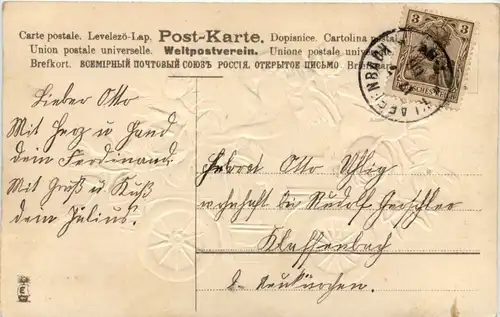 Carte postale. Levelező-Lap. Post-Karte. Dopisnice. Cartolina postal
Union postale universelle. Weltpostverein. Unione postale universale.
Brefkort. ВСЕМІРНЫЙ ПОЧТОВЫЙ СОЮЗЪ РОССІЯ. ОТКРЫТОЕ ПИСЬМО Briefkaart
3 3
KLAFFENBACH
Lieber Otto
Mit Herz u Hand
dein Ferdinand.
Mit Gruß u Kuß
dein Julius.
Otto Uhlig
wohnhaft bei Rudolf
Klaffenbach
b. Neukirchen.
E